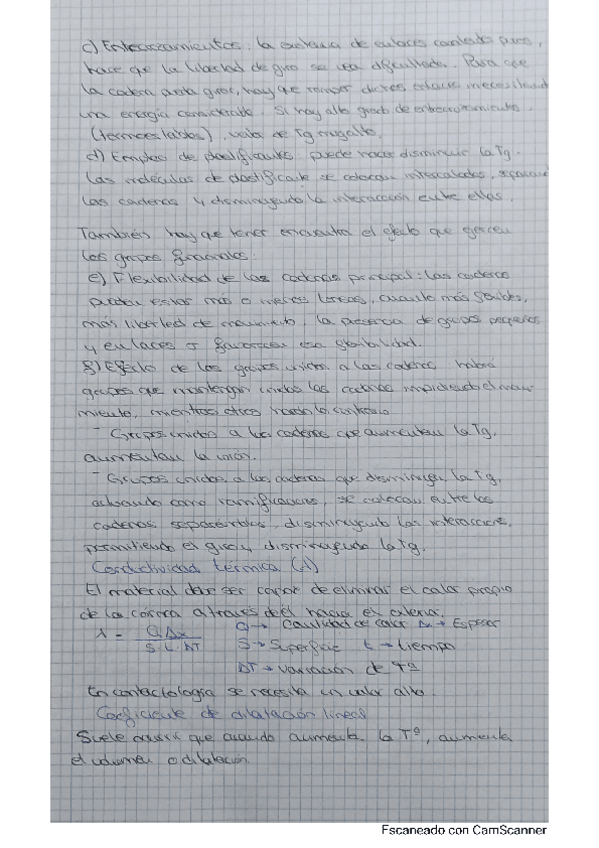 c) Entrecruzamientos: la existencia de enlaces cruzados
hace que la libertad de giro se vea dificultada. Para que
la cadena pueda girar, hay que romper dichos enlaces necesitando
una energía considerable. Si hay alto grado de entrecruzamiento
(termoestables), valor de Tg muy alto.
d) Empleo de plastificantes puede hacer disminuir la Tg.
Las moléculas de plastificante se colocan intercaladas, separando
las cadenas y disminuyendo la interacción entre ellas.
También hay que tener en cuenta el efecto que ejercen
los grupos funcionales:
e) Flexibilidad de las cadenas principal: las cadenas
pueden estar más o menos lineales, cuanto más flexibles,
más libertad de movimiento, la presencia de grupos pequeños
y enlaces σ favorecen esa flexibilidad.
f) Efecto de los grupos unidos a las cadenas: habrá
grupos que mantengan unidas las cadenas impidiendo el movi-
miento, mientras otros harán lo contrario
- Grupos unidos a las cadenas que aumentan la Tg,
aumentan la unión.
- Grupos unidos a las cadenas que disminuyen la Tg,
actuando como ramificaciones, se colocan entre las
cadenas separándolas, disminuyendo las interacciones,
permitiendo el giro y disminuyendo la Tg.
Conductividad térmica (λ)
El material debe ser capaz de eliminar el calor propio
de la córnea a través de él hacia el exterior.
λ = Q.Δx / S.t.ΔT Q → Cantidad de calor Δx → Espesor
S → Superficie t → tiempo
ΔT → variación de Tª
En contactología se necesita un valor alto.
Coeficiente de dilatación lineal
Suele ocurrir que cuando aumenta la Tª, aumenta
el volumen o dilatación.
Escaneado con CamScanner